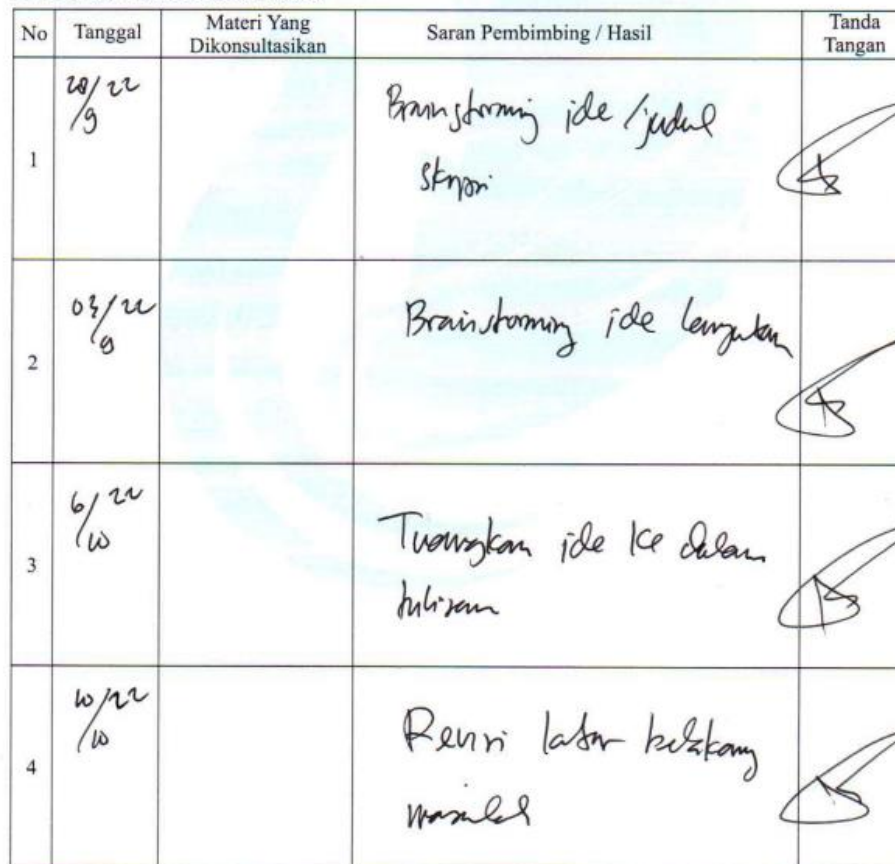 No Tanggal Materi Yang Dikonsultasikan Saran Pembimbing / Hasil Tanda Tangan
1 28/9 22 Brainstorming ide / judul
skripsi
2 03/9 22 Brainstorming ide lanjutan
3 6/10 22 Tuangkan ide ke dalam
tulisan
4 10/10 22 Revisi latar belakang
masalah